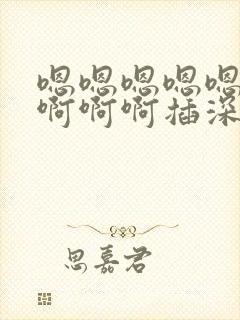 嗯嗯嗯嗯嗯
啊啊啊插深
思嘉君